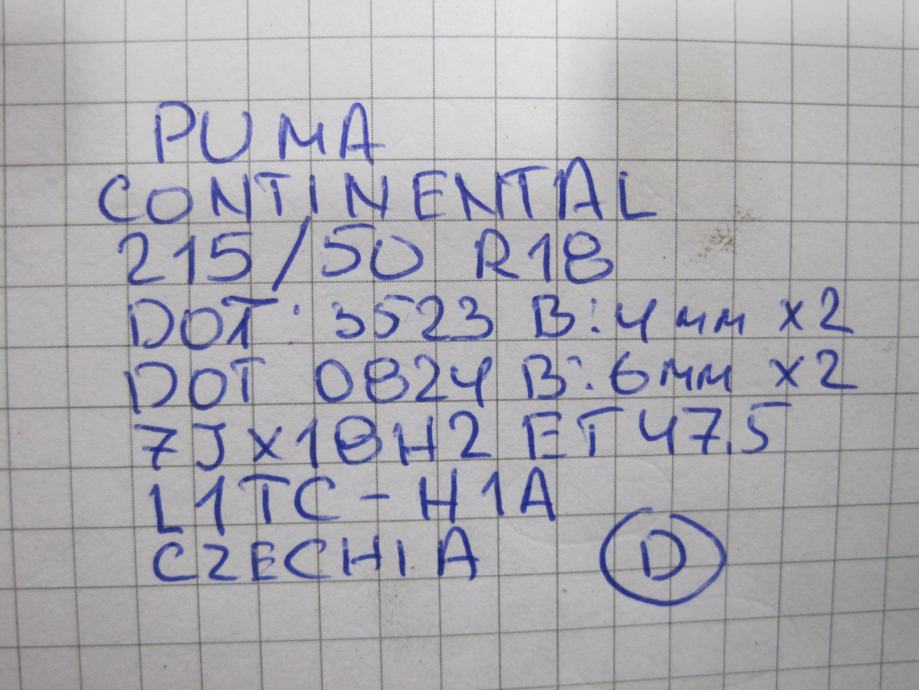 PUMA
CONTINENTAL
215/50 R18
DOT: 3523 B:4mm x2
DOT 0824 B:6mm x2
7JX18H2 ET47.5
L1TC-H1A
CZECHIA D